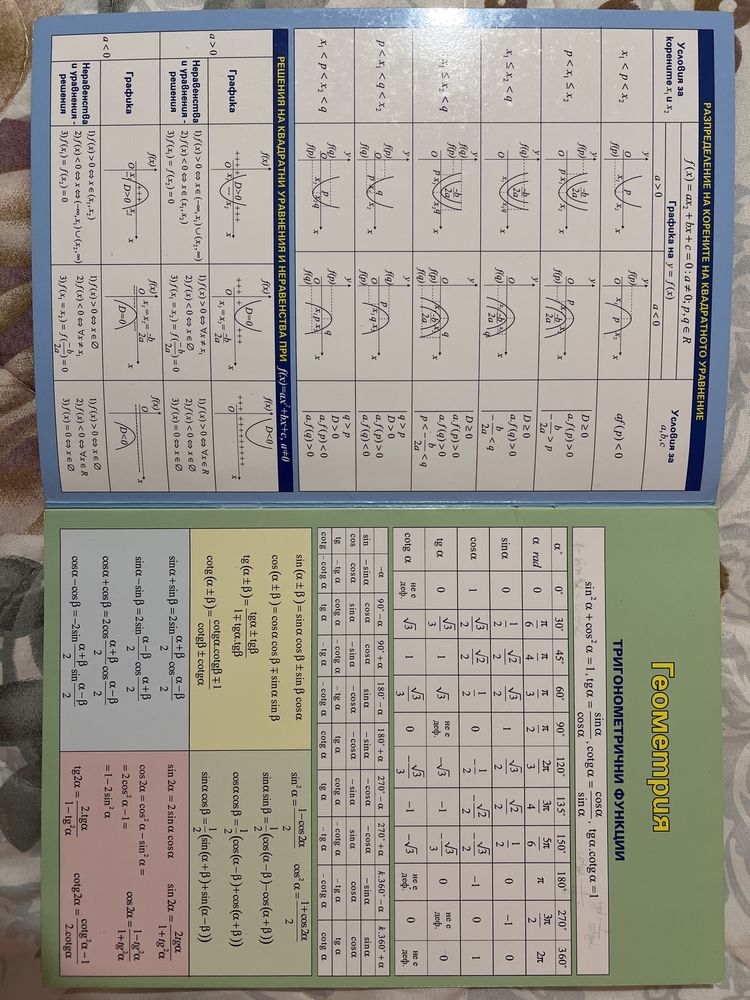 РАЗПРЕДЕЛЕНИЕ НА КОРЕНИТЕ НА КВАДРАТНОТО УРАВНЕНИЕ
Условия за корените x₁ и x₂
f(x) = ax₂ + bx + c = 0 : a ≠ 0; p, q ∈ R
Графика на y = f(x)
a > 0
a < 0
Условия за a,b,c
x₁ < p < x₂
af(p) < 0
p < x₁ ≤ x₂
D ≥ 0
a.f(p) > 0
-b/2a > p
x₁ ≤ x₂ < q
D ≥ 0
a.f(q) > 0
-b/2a < q
p < x₁ ≤ x₂ < q
D ≥ 0
a.f(p) > 0
a.f(q) > 0
p < -b/2a < q
p < x₁ < q < x₂
q > p
D > 0
a.f(p) > 0
a.f(q) < 0
x₁ < p < x₂ < q
q > p
D > 0
a.f(p) < 0
a.f(q) > 0
РЕШЕНИЯ НА КВАДРАТНИ УРАВНЕНИЯ И НЕРАВЕНСТВА ПРИ f(x)=ax²+bx+c, a≠0
a > 0
Графика
D>0
D=0
x₁ = x₂ = -b/2a
D<0
Неравенства и уравнения - решения
1) f(x) > 0 ⇔ x ∈ (-∞, x₁) ∪ (x₂, ∞)
2) f(x) < 0 ⇔ x ∈ (x₁, x₂)
3) f(x₁) = f(x₂) = 0
1) f(x) > 0 ⇔ ∀x ≠ x₁
2) f(x) < 0 ⇔ x ∈ ∅
3) f(x₁ = x₂) = f(-b/2a) = 0
1) f(x) > 0 ⇔ ∀x ∈ R
2) f(x) < 0 ⇔ x ∈ ∅
3) f(x) = 0 ⇔ x ∈ ∅
a < 0
Графика
D>0
D=0
x₁ = x₂ = -b/2a
D<0
Неравенства и уравнения - решения
1) f(x) > 0 ⇔ x ∈ (x₁, x₂)
2) f(x) < 0 ⇔ x ∈ (-∞, x₁) ∪ (x₂, ∞)
3) f(x₁) = f(x₂) = 0
1) f(x) > 0 ⇔ x ∈ ∅
2) f(x) < 0 ⇔ ∀x ≠ x₁
3) f(x₁ = x₂) = f(-b/2a) = 0
1) f(x) > 0 ⇔ x ∈ ∅
2) f(x) < 0 ⇔ ∀x ∈ R
3) f(x) = 0 ⇔ x ∈ ∅
Геометрия
ТРИГОНОМЕТРИЧНИ ФУНКЦИИ
sin²α + cos²α = 1, tgα = sinα/cosα, cotgα = cosα/sinα, tgα.cotgα = 1
α° 0° 30° 45° 60° 90° 120° 135° 150° 180° 270° 360°
α rad 0 π/6 π/4 π/3 π/2 2π/3 3π/4 5π/6 π 3π/2 2π
sinα 0 1/2 √2/2 √3/2 1 √3/2 √2/2 1/2 0 -1 0
cosα 1 √3/2 √2/2 1/2 0 -1/2 -√2/2 -√3/2 -1 0 1
tg α 0 √3/3 1 √3 не е деф. -√3 -1 -√3/3 0 не е деф. 0
cotg α не е деф. √3 1 √3/3 0 -√3/3 -1 -√3 не е деф. 0 не е деф.
-α 90°-α 90°+α 180°-α 180°+α 270°-α 270°+α k.360°-α k.360°+α
sin -sinα cosα cosα sinα -sinα -cosα -cosα -sinα sinα
cos cosα sinα -sinα -cosα -cosα -sinα sinα cosα cosα
tg -tg α cotg α -cotg α -tg α tg α cotg α -cotg α -tg α tg α
cotg -cotg α tg α -tg α -cotg α cotg α tg α -tg α -cotg α cotg α
sin(α ± β) = sinα cosβ ± sinβ cosα
cos(α ± β) = cosα cosβ ∓ sinα sinβ
tg(α ± β) = tgα ± tgβ / 1 ∓ tgα.tgβ
cotg(α ± β) = cotgα.cotgβ ∓ 1 / cotgβ ± cotgα
sin²α = 1-cos2α / 2 cos²α = 1+cos2α / 2
sinα sinβ = 1/2 (cos(α-β) - cos(α+β))
cosα cosβ = 1/2 (cos(α-β) + cos(α+β))
sinα cosβ = 1/2 (sin(α+β) + sin(α-β))
sinα + sinβ = 2sin α+β/2 cos α-β/2
sinα - sinβ = 2sin α-β/2 cos α+β/2
cosα + cosβ = 2cos α+β/2 cos α-β/2
cosα - cosβ = -2sin α+β/2 sin α-β/2
sin 2α = 2 sinα cosα sin 2α = 2tgα / 1+tg²α
cos 2α = cos²α - sin²α =
= 2 cos²α - 1 = cos2α = 1-tg²α / 1+tg²α
= 1 - 2 sin²α
tg2α = 2.tgα / 1-tg²α cotg2α = cotg²α - 1 / 2.cotgα